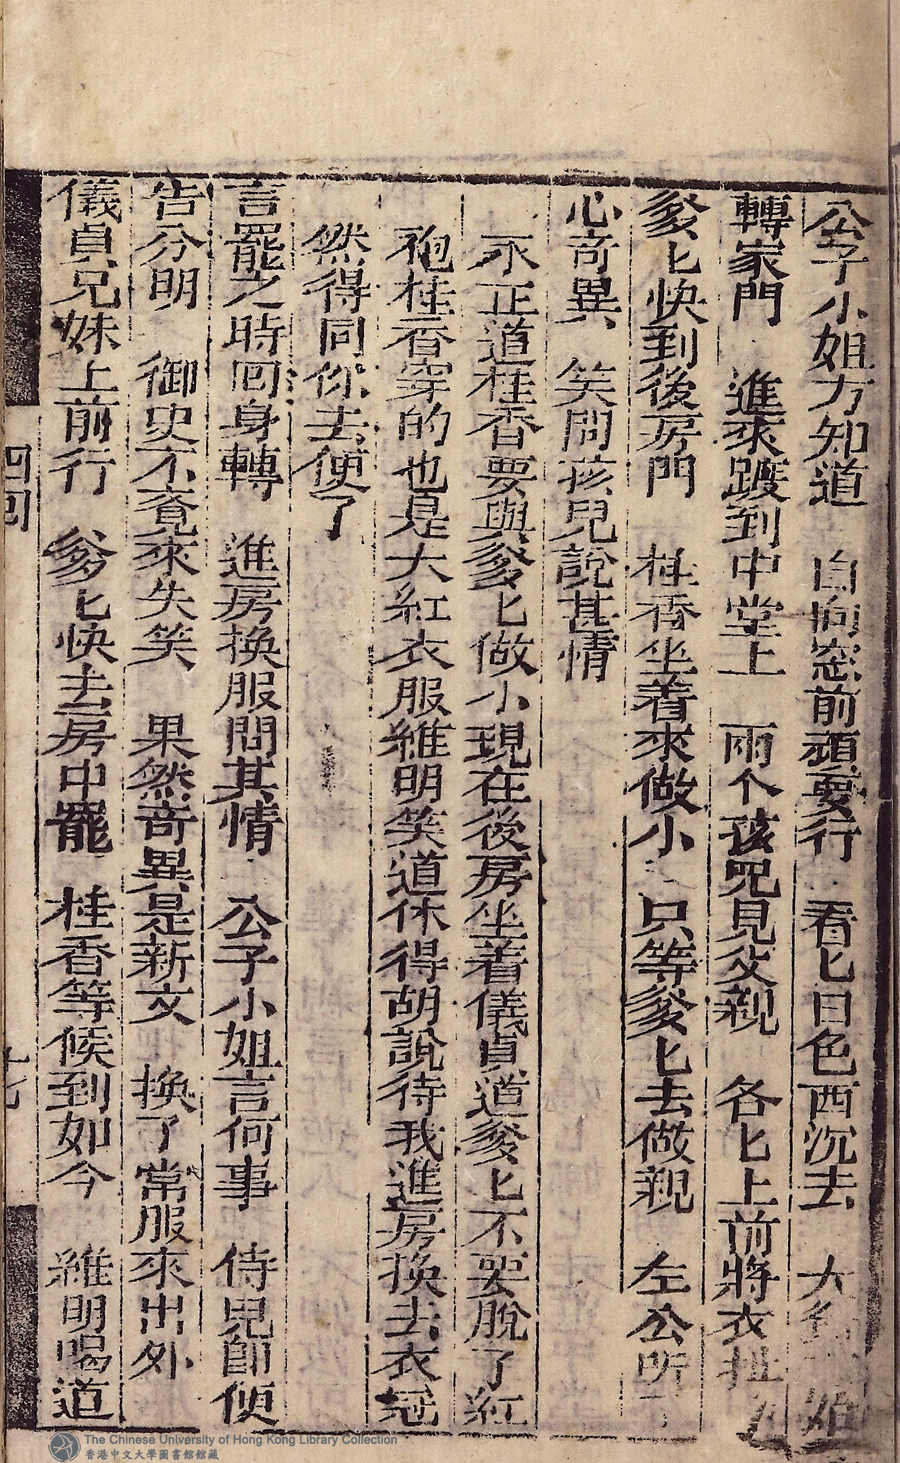 公子小姐方知道　自向窓前頑耍行　看匕日色西沉去　大
轉家門　進來踱到中堂上　兩个孩児見父親　各匕上前將衣扯
爹匕快到後房門　桂香坐着來做小　只等爹匕去做親　左公听
心奇異　笑問孩兒說甚情
永正道桂香要與爹匕做小現在後房坐着儀貞道爹匕不要脫了紅
袍桂香穿的也是大紅衣服維明笑道休得胡說待我進房換去衣冠
然得同你去便了
言罷之時回身轉　進房換服問其情　公子小姐言何事　侍児即便
告分明　御史不覔來失笑　果然奇異是新文　換了常服來出外
儀貞兄妹上前行　爹匕快去房中罷　桂香等候到如今　維明喝道
四囘
The Chinese University of Hong Kong Library Collection
香港中文大學圖書館館藏